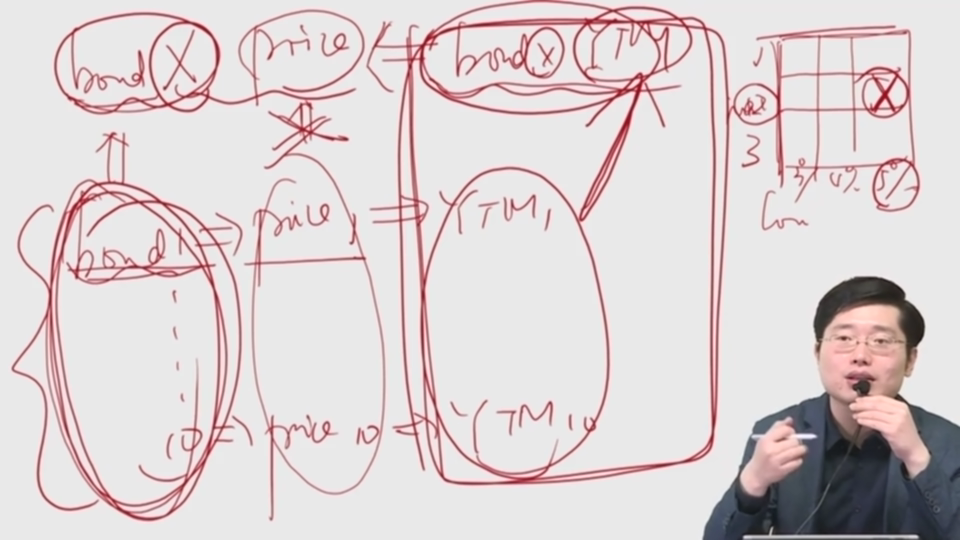 bond X price ⇐ bond X YTM
bond 1 ⇒ price 1 ⇒ YTM1
10 ⇒ price 10 ⇒ YTM10
1
X
3
3% 4% 5%
Cou